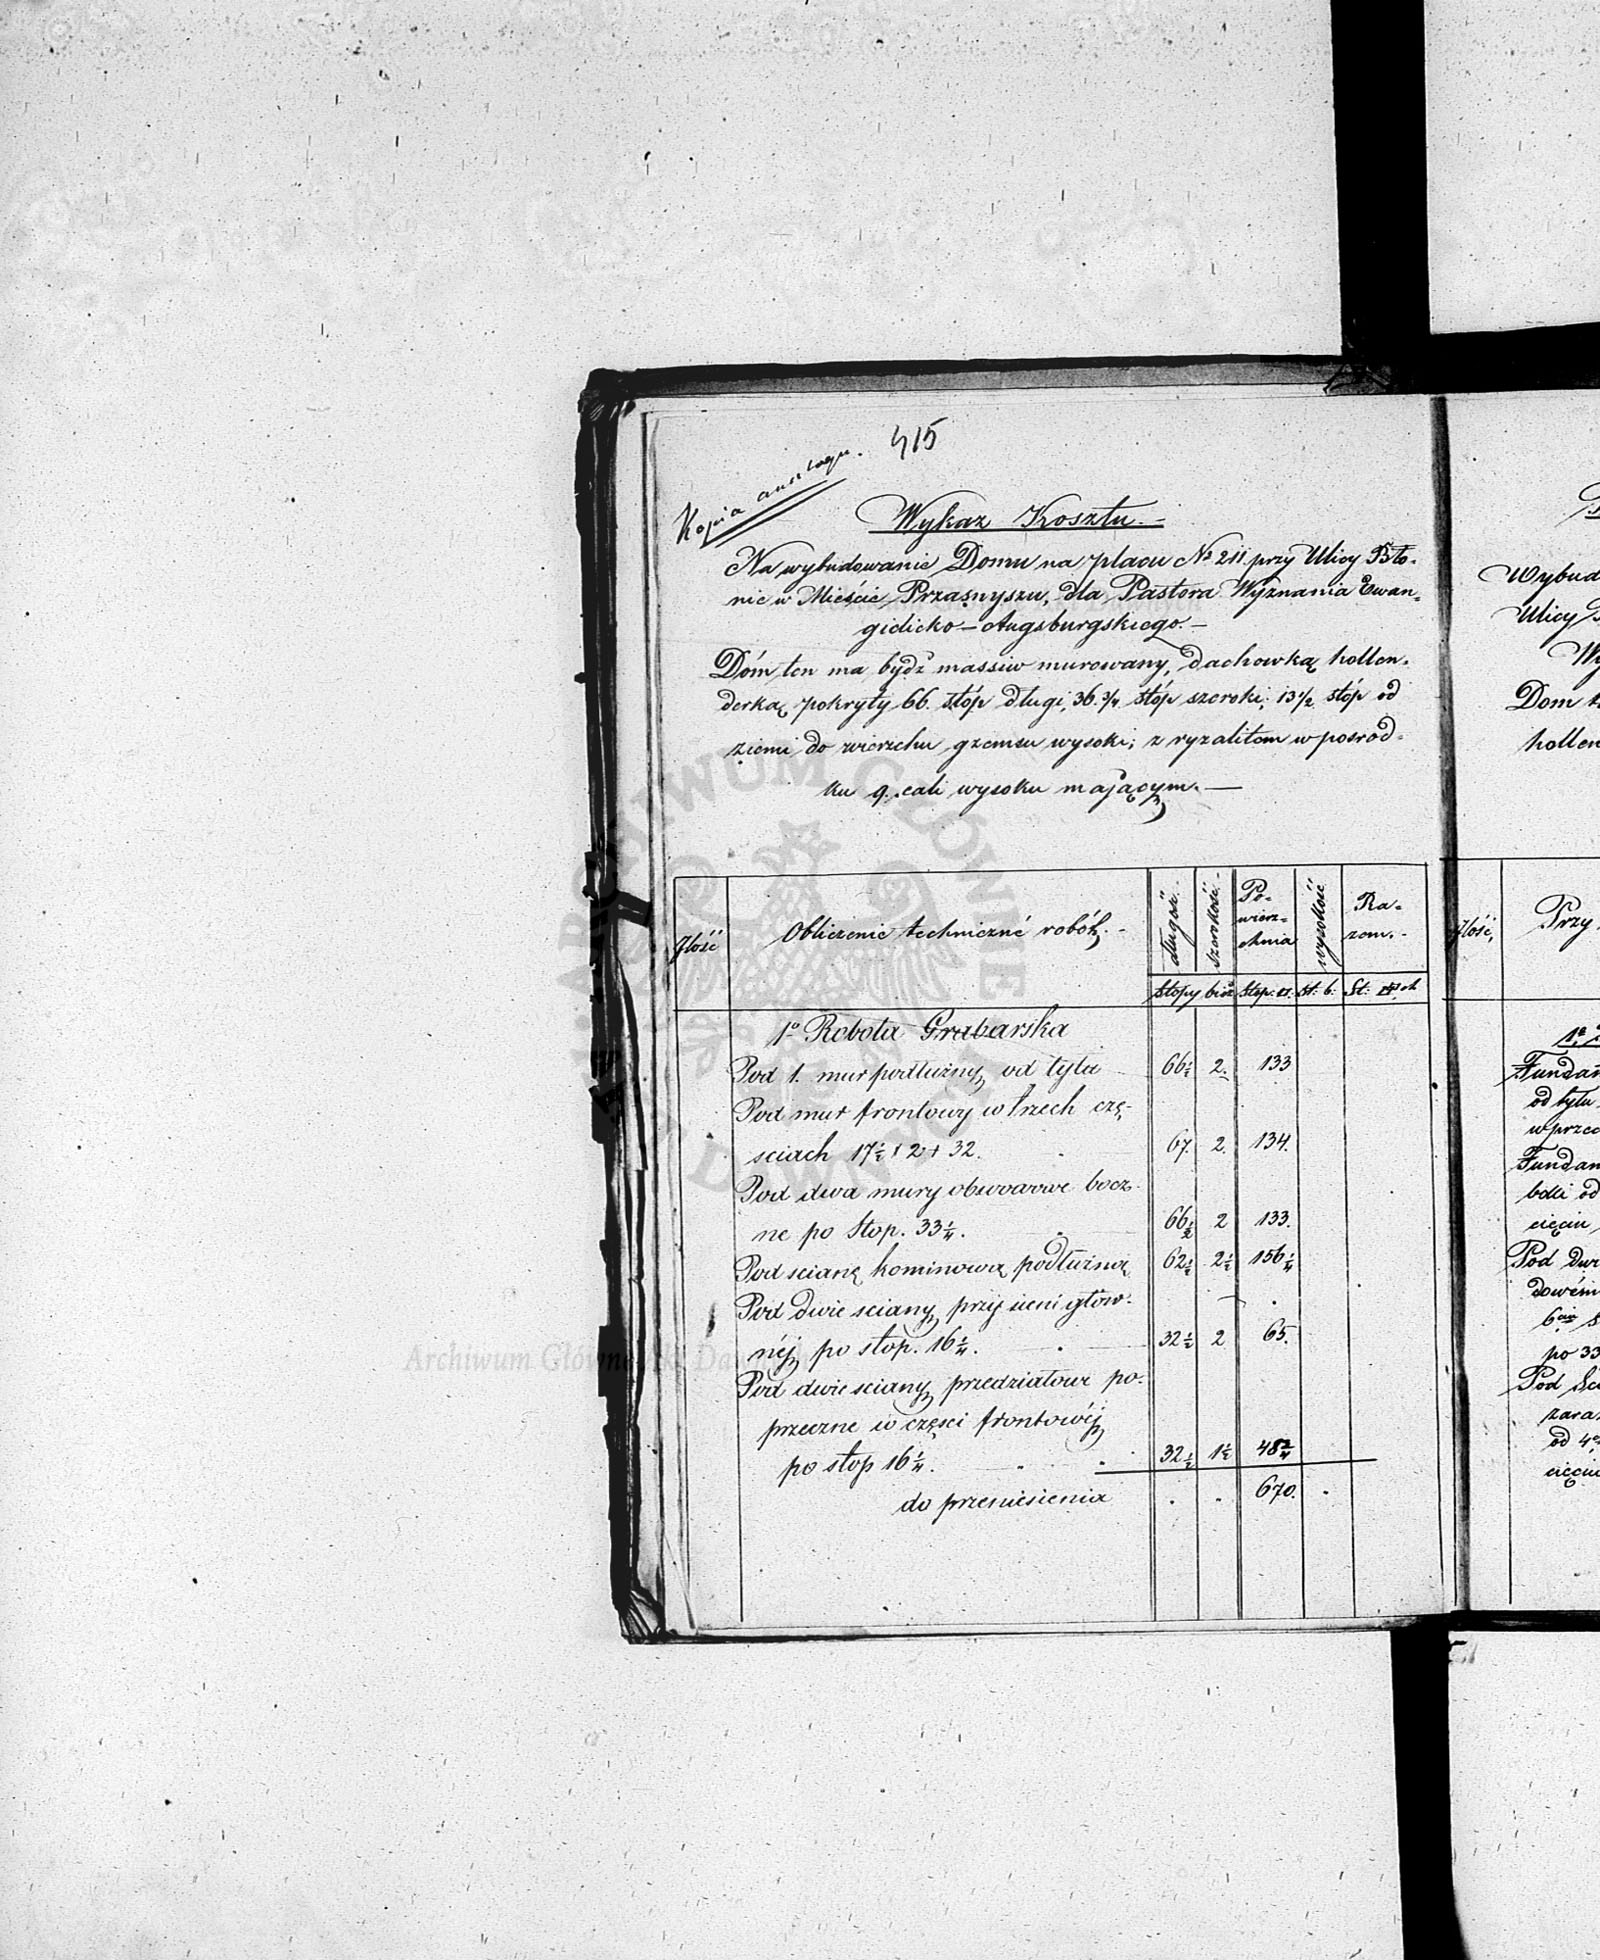 415
Kopia anszlagu.
Wykaz Kosztu.-
Na wybudowanie Domu na placu No 211 przy Ulicy Bło-
nie w Mieście Przasnyszu, dla Pastora Wyznania Ewan-
gielicko-Augsburgskiego.-
Dóm ten ma bydź massiw murowany, dachowką hollen-
derką pokryty 66 stóp długi, 36 3/4 stóp szeroki, 13 1/2 stóp od
ziemi do wierzchu gzemsu wysoki; z ryzalitem w pośrod-
ku 9. cali wysoku mającym.—
Ilość
Obliczenie techniczné robót.-
długość.
Szerokość.
Po-
wierz-
chnia
wysokość
Ra-
zem.-
Stopy bież Stop: □. St: b. St:
1o Robota Grabarska
Pod 1. mur podłużny od tyłu 66 1/2 2. 133
Pod mur frontowy w trzech czę-
sciach 17 1/2 + 2 + 32. 67. 2. 134.
Pod dwa mury obwodowe bocz-
ne po Stop. 33 1/4. 66 1/2 2 133.
Pod scianę kominową podłużną 62 1/2 2 1/2 156 1/4
Pod dwie sciany przy sieni głów-
néj po stop. 16 1/4. 32 1/2 2 65.
Pod dwie sciany przedziałowe po-
przeczne w części frontowéj
po stop 16 1/4. 32 1/2 1 1/2 48 3/4
do przeniesienia . . 670. .
Wybud
Ulicy
Wy
Dom
hollen
Ilość,
Przy
Fundam
od tyłu
w przec
Fundam
od
cięciu
Pod dwa
6
po 33
Pod
zara
od 4
cięciu